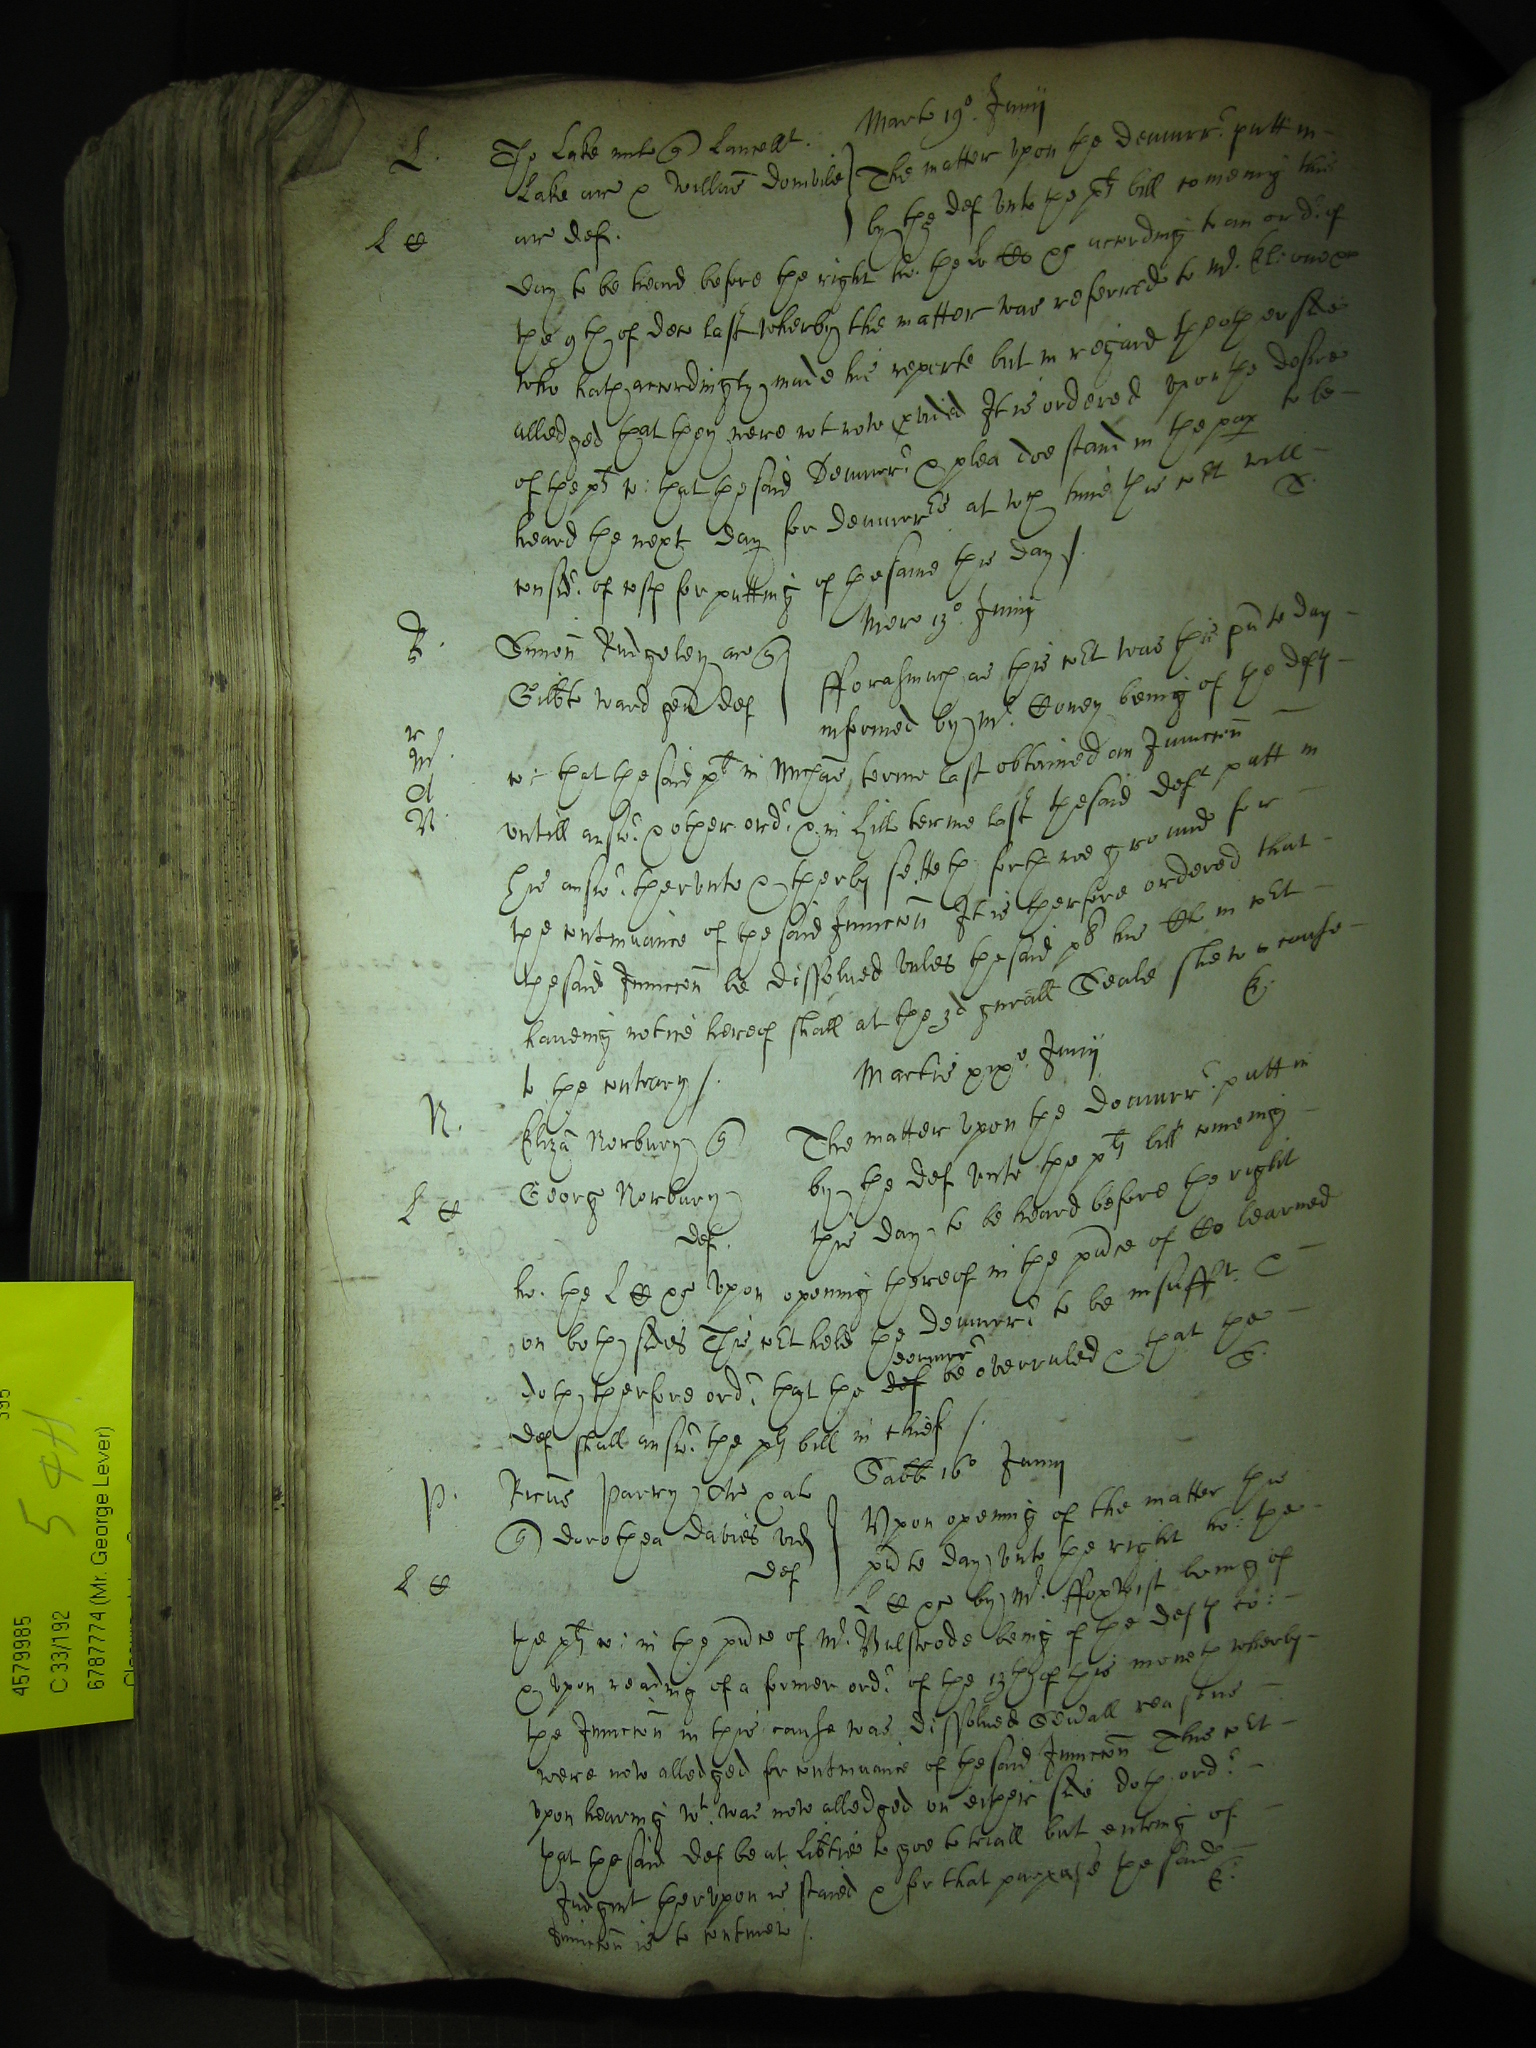 Marte 19o Junij
L. Tho Lake milt Lancellt.
Lake ar & Willm Domvile } The matter vpon the demurr putt in
L C ar def. by the def vnto the plts bill comeing this
day to be heard before the right ho. the Lo &c according to an ord of
the 9th of Dec last wherby the matter was referred to Mr.
who hath accordingly made his reporte but in regard thother side
alledged that they were not now pvided It is ordered vpon the desire
of the plts co: that the said Demurr & plea doe stand in the pap to be
heard the next day for demurrs at wch time this cort will
consid. of costs for putting of the same this day /. S.
Merc 13o Junij
R. Simon Rudgeley ar
Gilbte Ward gen def } Fforasmuch as this cort was this pnte day
informed by Mr. being of the defts
r co: that the said plt in Michas terme last obtained an Junccon
M. vntill answ. & other ord. & in Hill terme last the said deft putt in
his answ. thervnto & therby setteth forth noe ground for
the contynuance of the said Junccon It is therfore ordered that
the said Junccon be dissolved vnles the said plt his Cl in cort
haveing notice hereof shall at the 3d gnrall Seale shew cause
to the contrary /. E.
Martis xixo Junij
N. Eliza Norbury
Georg Norbury The matter vpon the demurr. putt in
L C def. by the def vnto the plts bill comeing
this day to be heard before the right
ho. the L C &c vpon opening thereof in the pnce of Co learned
on both sides This cort held the demurr to be insufft. &
doth therfore ord. that the def demurr be overruled & that the
def shall answ. the plts bill in chief /. S.
Sabb 16o Junij
P. Ricus Parry Cler & al
Dorothea Davies vid } Vpon opening of the matter this
L C def pnte day vnto the right ho: the
L C &c by Mr. Ffoxwist being of
the plts co: in the pnce of Mr. Bulstrode being of the defts co:
& vpon reading of a former ord. of the 13th of this moneth wherby
the Junccon in this cause was dissolved Sevrall reasons
were now alledged for contynuance of the said Junccon This cort
vpon hearing wt. was now alledged on either side doth ord.
that the said Def be at libtie to goe to triall but entring of
Judgmt thervpon is staied & for that purpose the said
Junccon is to contynew /. E.
54H.
4579985
C 33/192
6787774 (Mr. George Lever)